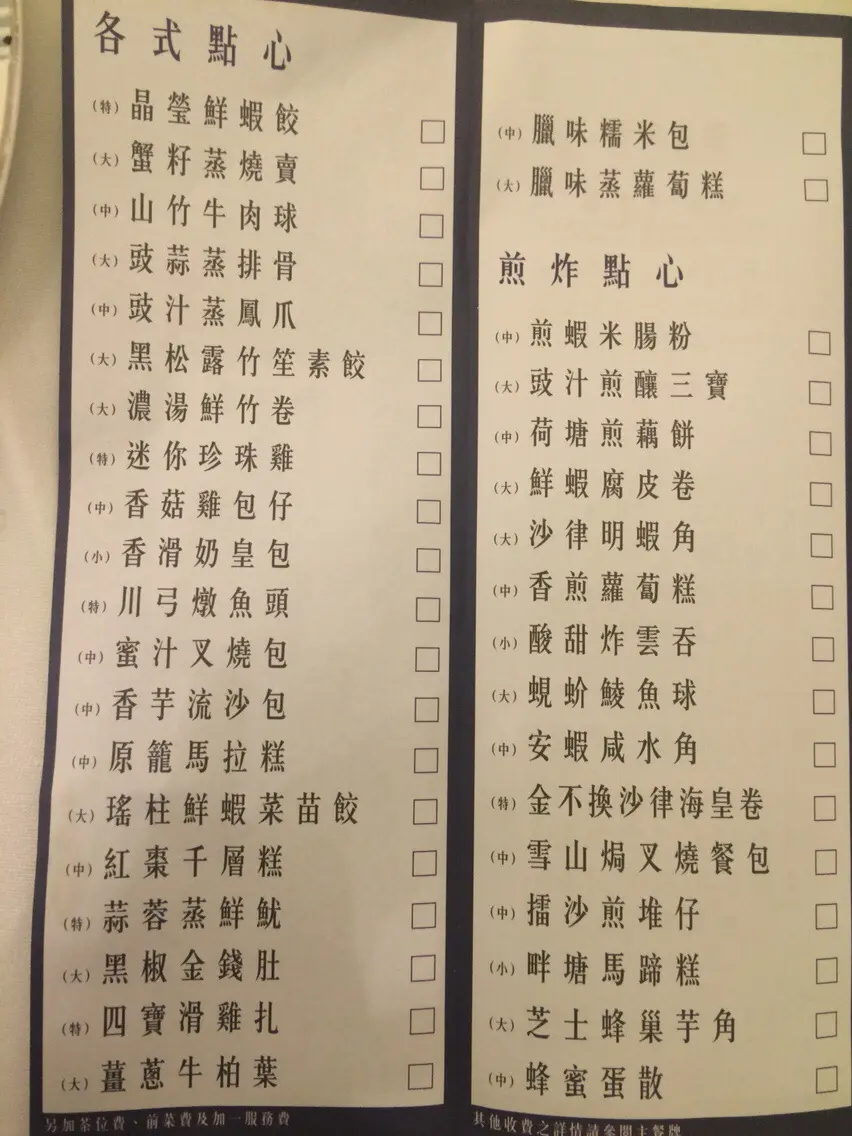 各式點心
(特) 晶瑩鮮蝦餃
(大) 蟹籽蒸燒賣
(中) 山竹牛肉球
(大) 豉蒜蒸排骨
(中) 豉汁蒸鳳爪
(大) 黑松露竹笙素餃
(大) 濃湯鮮竹卷
(特) 迷你珍珠雞
(中) 香菇雞包仔
(小) 香滑奶皇包
(特) 川弓燉魚頭
(中) 蜜汁叉燒包
(中) 香芋流沙包
(中) 原籠馬拉糕
(大) 瑤柱鮮蝦菜苗餃
(中) 紅棗千層糕
(特) 蒜蓉蒸鮮魷
(大) 黑椒金錢肚
(特) 四寶滑雞扎
(大) 薑蔥牛柏葉
另加茶位費、前菜費及加一服務費
(中) 臘味糯米包
(大) 臘味蒸蘿蔔糕
煎炸點心
(中) 煎蝦米腸粉
(大) 豉汁煎釀三寶
(中) 荷塘煎藕餅
(大) 鮮蝦腐皮卷
(大) 沙律明蝦角
(中) 香煎蘿蔔糕
(小) 酸甜炸雲吞
(大) 蜆蚧鯪魚球
(中) 安蝦咸水角
(特) 金不換沙律海皇卷
(中) 雪山焗叉燒餐包
(中) 擂沙煎堆仔
(小) 畔塘馬蹄糕
(大) 芝士蜂巢芋角
(中) 蜂蜜蛋散
其他收費之詳情請參閱主餐牌